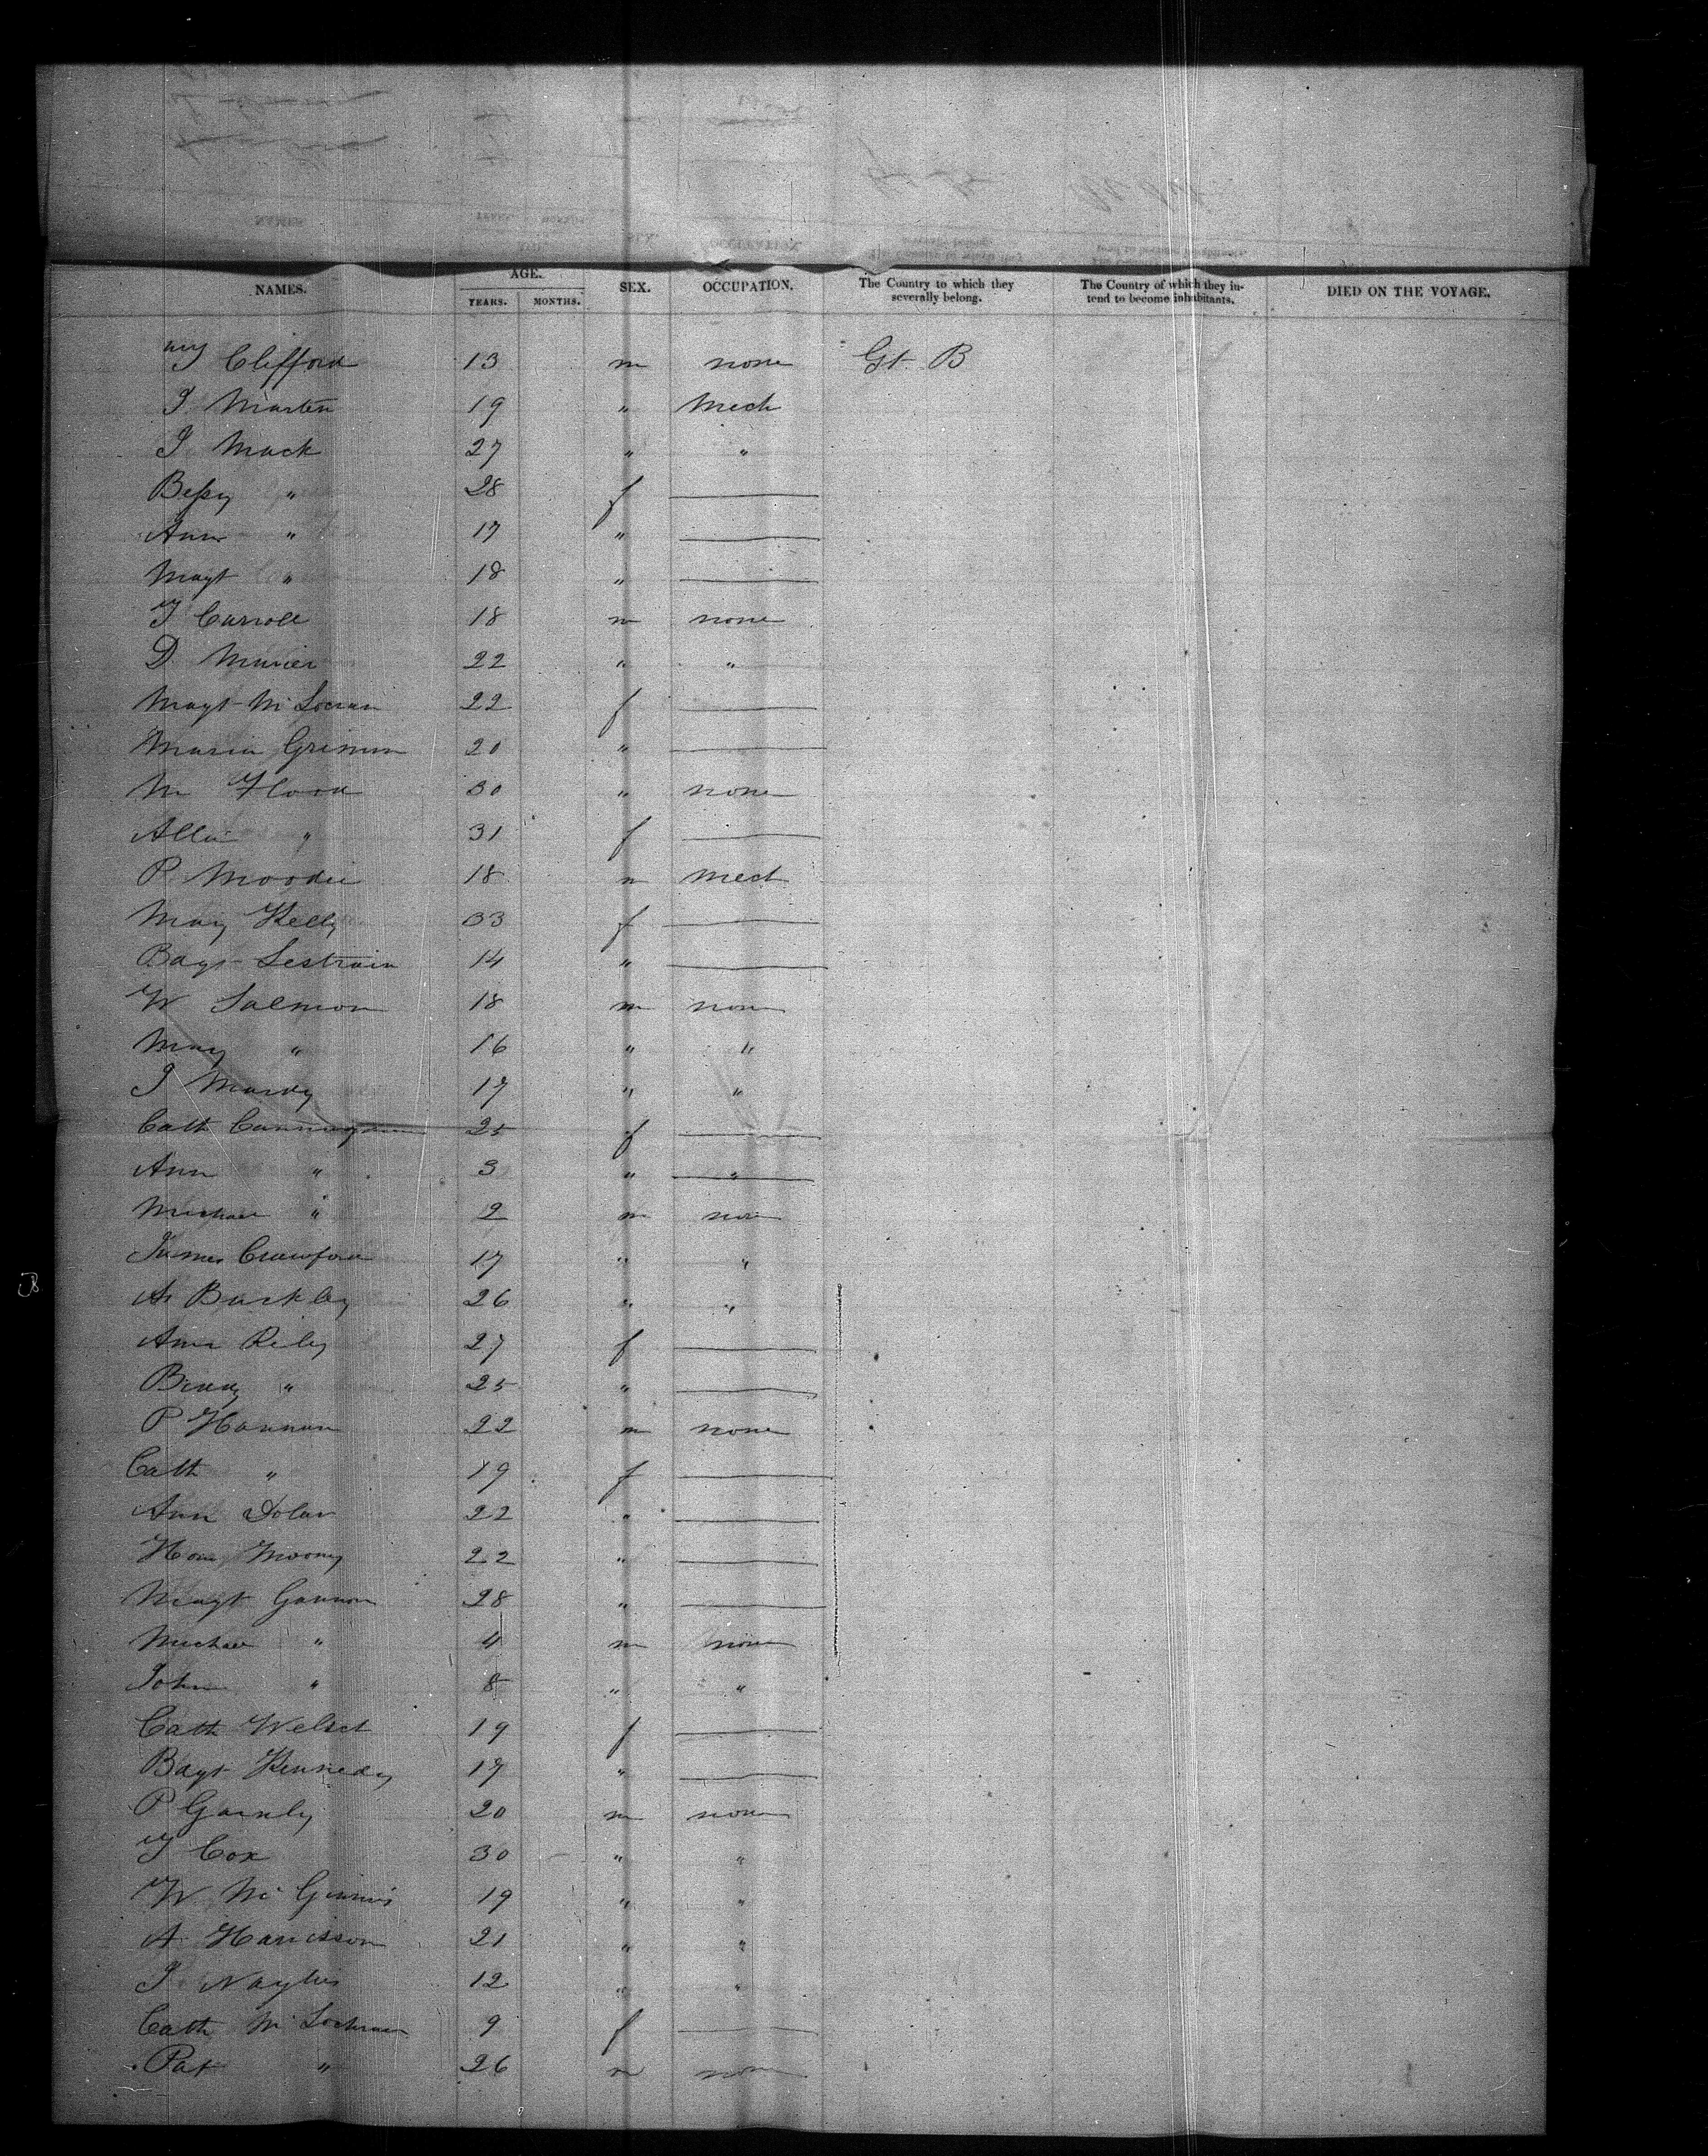 NAMES. AGE. SEX. OCCUPATION. The Country to which they severally belong. The Country of which they intend to become inhabitants. DIED ON THE VOYAGE.
YEARS. MONTHS.
T Clifford 13 m none Gt. B
J. Marten 19 " Mech
J Mack 27 " "
Bessy " 28 f
Ann " 17 "
Magt " 18 "
T Carroll 18 m none
D. 22 " "
Magt 22 f
Maria 20 "
M Flood 30 " none
" 31 f
P. Moodie 18 m Mech
Mary Kelly 33 f
Lestrain 14 "
W Salmon 18 m none
Mary " 16 " "
J 17 " "
Cath Cunningham 25 f
Ann " 3 " "
Michael " 2 m none
James Crawford 17 " "
Buckley 26 " "
Ann Riley 27 f
" 25 "
P Hannan 22 m none
Cath " 19 f
Ann Dolan 22 "
Mooney 22 "
Magt Gannon 28 "
Michael " 4 m none
John " 8 " "
Cath Welsch 19 f
Kennedy 17 "
P 20 m none
T Cox 30 " "
W McGinnis 19 " "
A. Harrisson 21 " "
J 12 " "
Cath 9 f
Pat " 26 m none